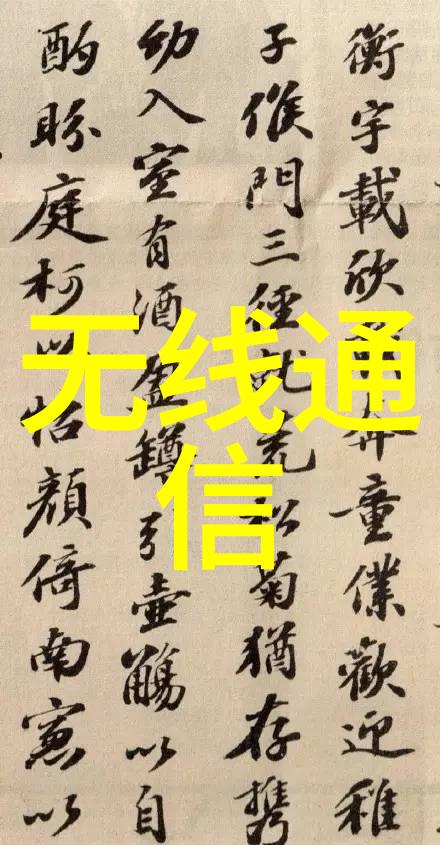 衡宇載欣奔童僕歡迎稚
子候門三徑就荒松菊猶存携
幼入室有酒盈罇引壺觴以自
酌眄庭柯以怡顏倚南窻以
无线通
信